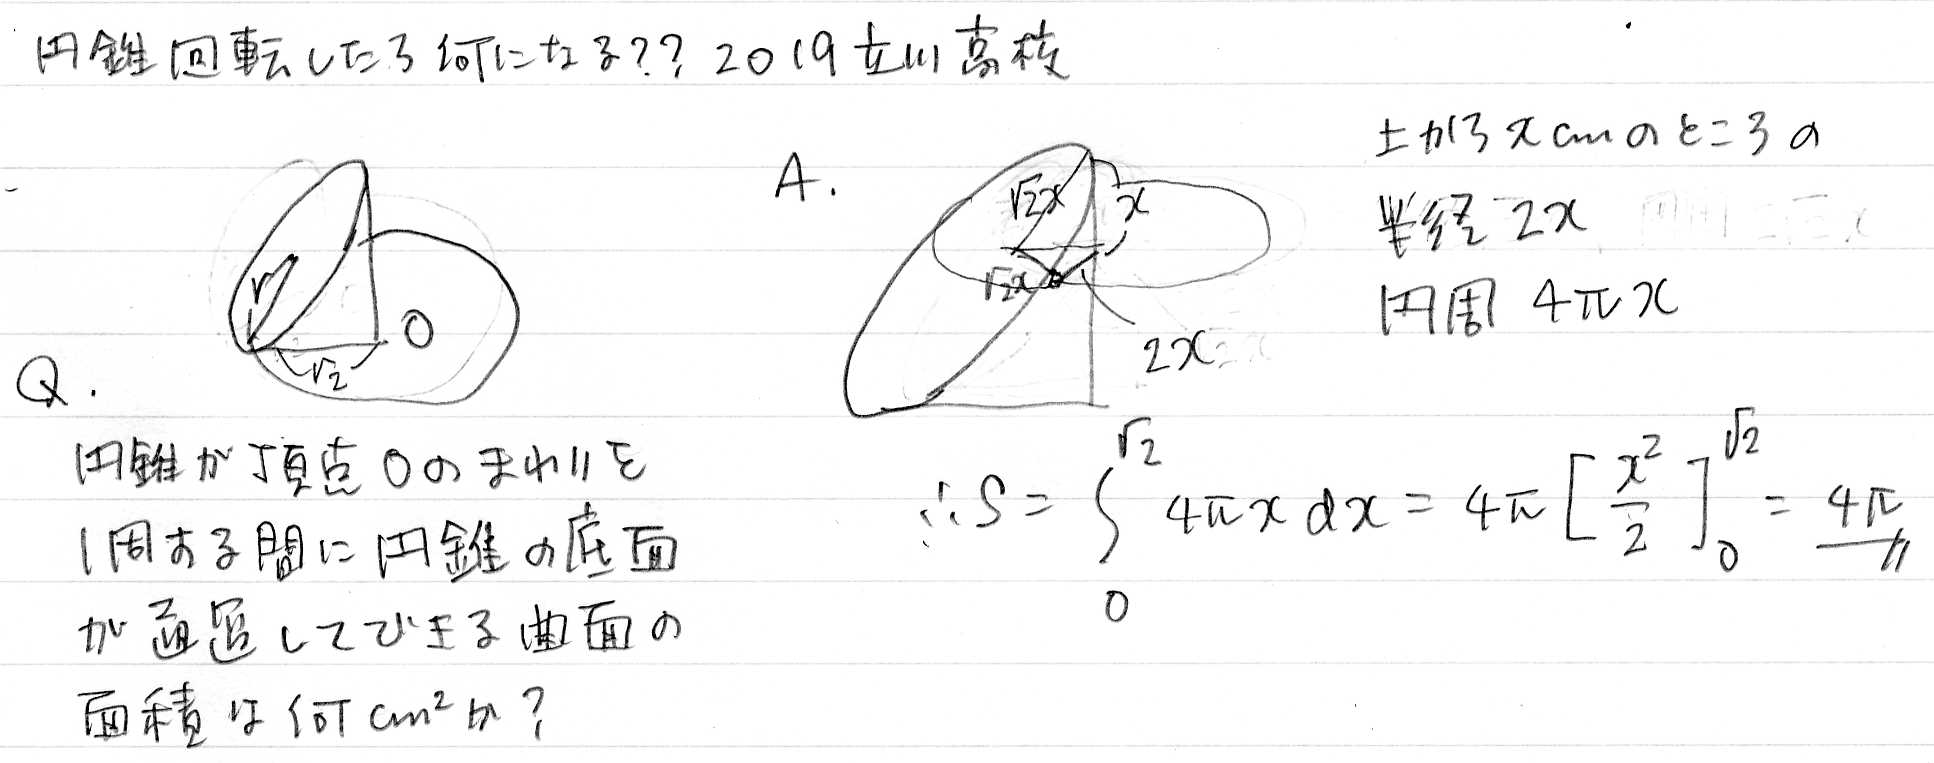 円錐回転したら何になる?? 2019 立川高校
r
O
√2
Q.
円錐が頂点Oのまわりを
1周する間に円錐の底面
が通過してできる曲面の
面積は何cm²か?
A.
√2x
x
√2x
2x
上からxcmのところの
半径 2x
円周 4πx
∴S = ∫₀^√2 4πx dx = 4π [x²/2]₀^√2 = 4π